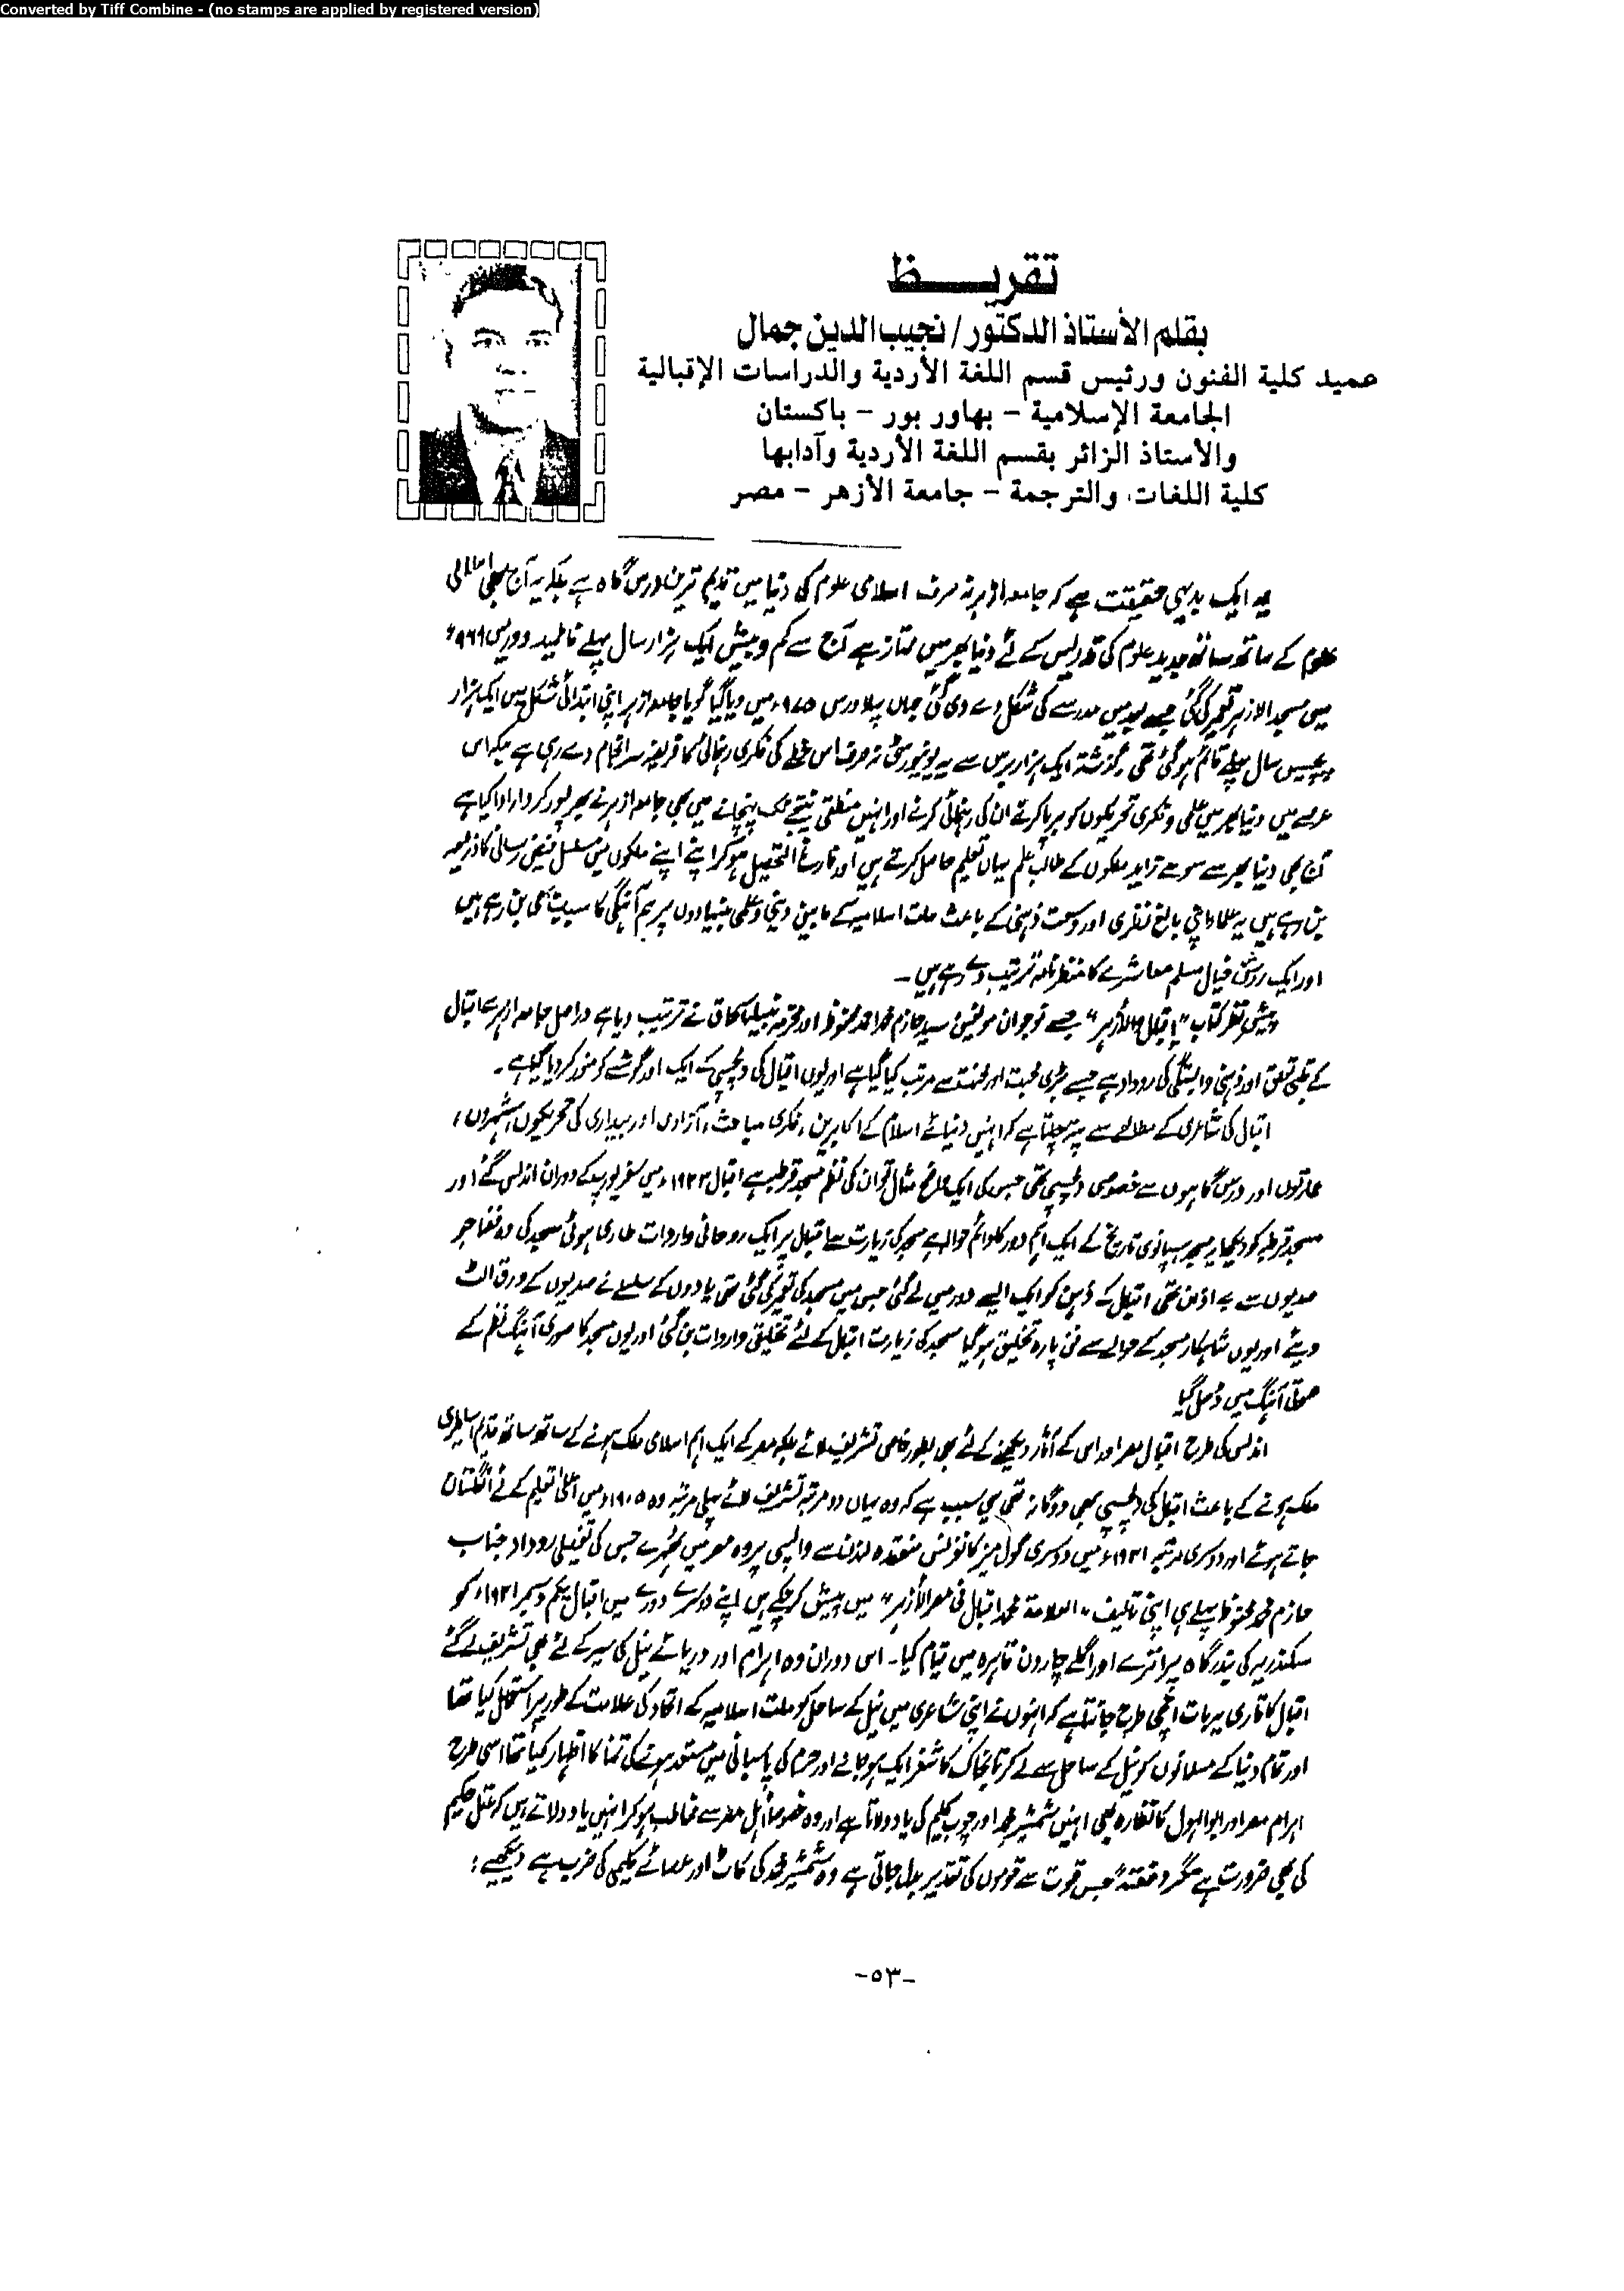 Converted by Tiff Combine - (no stamps are applied by registered version)
تقريـــظ
بقلم الأستاذ الدكتور/ نجيب الدين جمال
عميد كلية الفنون ورئيس قسم اللغة الأردية والدراسات الإقبالية
الجامعة الإسلامية - بهاور بور - باكستان
والأستاذ الزائر بقسم اللغة الأردية وآدابها
كلية اللغات، والترجمة - جامعة الأزهر - مصر
یہ ایک بدیہی حقیقت ہے کہ جامعہ ازہر نہ صرف اسلامی علوم کی دنیا میں قدیم ترین درس گاہ ہے بلکہ یہ آج بھی اسلامی
علوم کے ساتھ ساتھ جدید علوم کی تدریس کے لئے دنیا بھر میں ممتاز ہے آج سے کم و بیش ایک ہزار سال پہلے فاطمید دور میں ۹۶۹ء
میں مسجد الازہر تعمیر کی گئی جسے بعد میں مدرسے کی شکل دے دی گئی جہاں پہلا درس ۹۷۵ء میں دیا گیا گویا جامعہ ازہر اپنی ابتدائی شکل میں ایک ہزار
پچیس سال پہلے قائم ہو گئی تھی گزشتہ ایک ہزار برس سے یہ یونیورسٹی نہ صرف اس خطے کی فکری رہنمائی کا فریضہ سرانجام دے رہی ہے بلکہ اس
عرصے میں دنیا بھر میں علمی و فکری تحریکوں کو برپا کرنے ان کی رہنمائی کرنے اور انہیں منطقی نتیجے تک پہنچانے میں بھی جامعہ ازہر نے بھرپور کردار ادا کیا ہے
آج بھی دنیا بھر سے سو سے زاید ملکوں کے طالب علم یہاں تعلیم حاصل کرتے ہیں اور فارغ التحصیل ہو کر اپنے اپنے ملکوں میں مسلسل فیض رسانی کا ذریعہ
بن رہے ہیں یہ علما اپنی بالغ نظری اور وسعت ذہنی کے باعث ملت اسلامیہ کے مابین دینی و علمی بنیادوں پر ہم آہنگی کا سبب بھی بن رہے ہیں
اور ایک روشن خیال مسلم معاشرے کا منظر نامہ ترتیب دے رہے ہیں۔
پیش نظر کتاب "إقبال والأزہر" جسے نوجوان مولفین سید حازم محمد احمد محفوظ اور محترمہ نبیلہ اسحاق نے ترتیب دیا ہے دراصل جامعہ ازہر سے اقبال
کے قلبی تعلق اور ذہنی وابستگی کی روداد ہے جسے بڑی محبت اور محنت سے مرتب کیا گیا ہے اور یوں اقبال کی دلچسپی کے ایک اور گوشے کو منور کر دیا گیا ہے۔
اقبال کی شاعری کے مطالعے سے پتہ چلتا ہے کہ انہیں دنیائے اسلام کے اکابرین، فکری مباحث، آزادی اور بیداری کی تحریکوں، شہروں،
عمارتوں اور درس گاہوں سے خصوصی دلچسپی تھی جس کی ایک واضح مثال تو ان کی نظم مسجد قرطبہ ہے اقبال ۱۹۳۳ء میں سفر یورپ کے دوران اندلس گئے اور
مسجد قرطبہ کو دیکھا یہ مسجد ہسپانوی تاریخ کے ایک اہم دور کا دائم حوالہ ہے مسجد کی زیارت سے اقبال پر ایک روحانی واردات طاری ہوئی مسجد کی وہ فضا جو
صدیوں سے بے اذن تھی اقبال کے ذہن کو ایک ایسے دور میں لے گئی جس میں مسجد کی تعمیر کی گئی تھی یادوں کے سلسلے نے صدیوں کے ورق الٹ
دیئے اور یوں شاہکار مسجد کے حوالے سے فن پارہ تخلیق ہو گیا مسجد کی زیارت اقبال کے لئے تخلیقی واردات بن گئی اور یوں مسجد کا صوری آہنگ نظم کے
صوتی آہنگ میں ڈھل گیا
اندلس کی طرح اقبال مصر اور اس کے آثار دیکھنے کے لئے بھی بطور خاص تشریف لائے بلکہ مصر کے ایک اہم اسلامی ملک ہونے کے ساتھ ساتھ قدیم اساطیری
ملک ہونے کے باعث اقبال کی دلچسپی بھی دوگانہ تھی یہی سبب ہے کہ وہ یہاں دو مرتبہ تشریف لائے پہلی مرتبہ وہ ۱۹۰۵ء میں اعلیٰ تعلیم کے لئے انگلستان
جاتے ہوئے اور دوسری مرتبہ ۱۹۳۱ء میں دوسری گول میز کانفرنس منعقدہ لندن سے واپسی پر وہ مصر میں ٹھہرے جس کی تفصیلی روداد جناب
حازم محمد محفوظ پہلے ہی اپنی تالیف "العلامة محمد اقبال فی مصر الأزہر" میں پیش کر چکے ہیں اپنے دوسرے دورے میں اقبال یکم دسمبر ۱۹۳۱ء کو
سکندریہ کی بندرگاہ پر اترے اور اگلے چار دن قاہرہ میں قیام کیا۔ اس دوران وہ اہرام اور دریائے نیل کی سیر کے لئے بھی تشریف لے گئے
اقبال کا قاری یہ بات اچھی طرح جانتا ہے کہ انہوں نے اپنی شاعری میں نیل کے ساحل کو ملت اسلامیہ کے اتحاد کی علامت کے طور پر استعمال کیا تھا
اور تمام دنیا کے مسلمانوں کو نیل کے ساحل سے لے کر تابخاک کاشغر ایک ہو جانے اور حرم کی پاسبانی میں مستعد ہونے کی تمنا کا اظہار کیا تھا اسی طرح
اہرام مصر اور ابوالہول کا نظارہ بھی انہیں شمشیر محمد اور چوب کلیم کی یاد دلاتا ہے اور وہ خصوصاً اہل مصر سے مخاطب ہو کر انہیں یاد دلاتے ہیں کہ عقل حکیم
کی بھی ضرورت ہے مگر دفعتہً جس قوت سے قوموں کی تقدیر بدل جاتی ہے وہ شمشیر محمد کی کاٹ اور عصائے کلیمی کی ضرب ہے دیکھیے:
-٥٣-